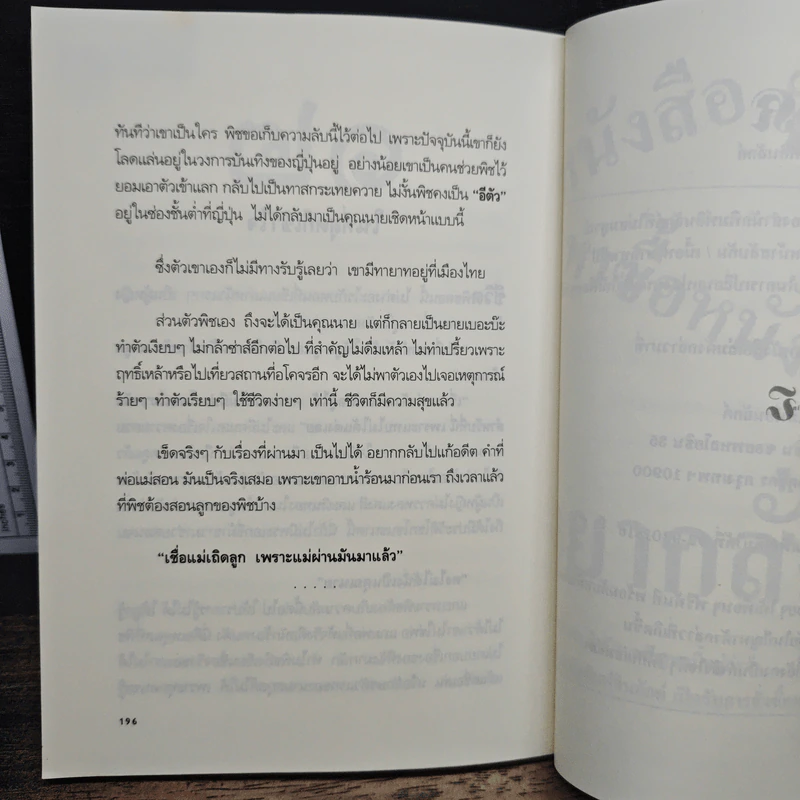 ทันทีว่าเขาเป็นใคร พิชขอเก็บความลับนี้ไว้ต่อไป เพราะปัจจุบันนี้เขาก็ยัง
โลดแล่นอยู่ในวงการบันเทิงของญี่ปุ่นอยู่ อย่างน้อยเขาเป็นคนช่วยพิชไว้
ยอมเอาตัวเข้าแลก กลับไปเป็นทาสกระเทยควาย ไม่งั้นพิชคงเป็น "อีตัว"
อยู่ในซ่องชั้นต่ำที่ญี่ปุ่น ไม่ได้กลับมาเป็นคุณนายเชิดหน้าแบบนี้
ซึ่งตัวเขาเองก็ไม่มีทางรับรู้เลยว่า เขามีทายาทอยู่ที่เมืองไทย
ส่วนตัวพิชเอง ถึงจะได้เป็นคุณนาย แต่ก็กลายเป็นยายเบอะบ๊ะ
ทำตัวเงียบๆ ไม่กล้าซ่าส์อีกต่อไป ที่สำคัญไม่ดื่มเหล้า ไม่ทำเปรี้ยวเพราะ
ฤทธิ์เหล้าหรือไปเที่ยวสถานที่อโคจรอีก จะได้ไม่พาตัวเองไปเจอเหตุการณ์
ร้ายๆ ทำตัวเรียบๆ ใช้ชีวิตง่ายๆ เท่านี้ ชีวิตก็มีความสุขแล้ว
เข็ดจริงๆ กับเรื่องที่ผ่านมา เป็นไปได้ อยากกลับไปแก้อดีต คำที่
พ่อแม่สอน มันเป็นจริงเสมอ เพราะเขาอาบน้ำร้อนมาก่อนเรา ถึงเวลาแล้ว
ที่พิชต้องสอนลูกของพิชบ้าง
"เชื่อแม่เถิดลูก เพราะแม่ผ่านมันมาแล้ว"
. . . . .
196